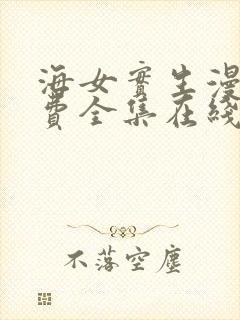 海女實生漫
費全集在綫
不落空塵